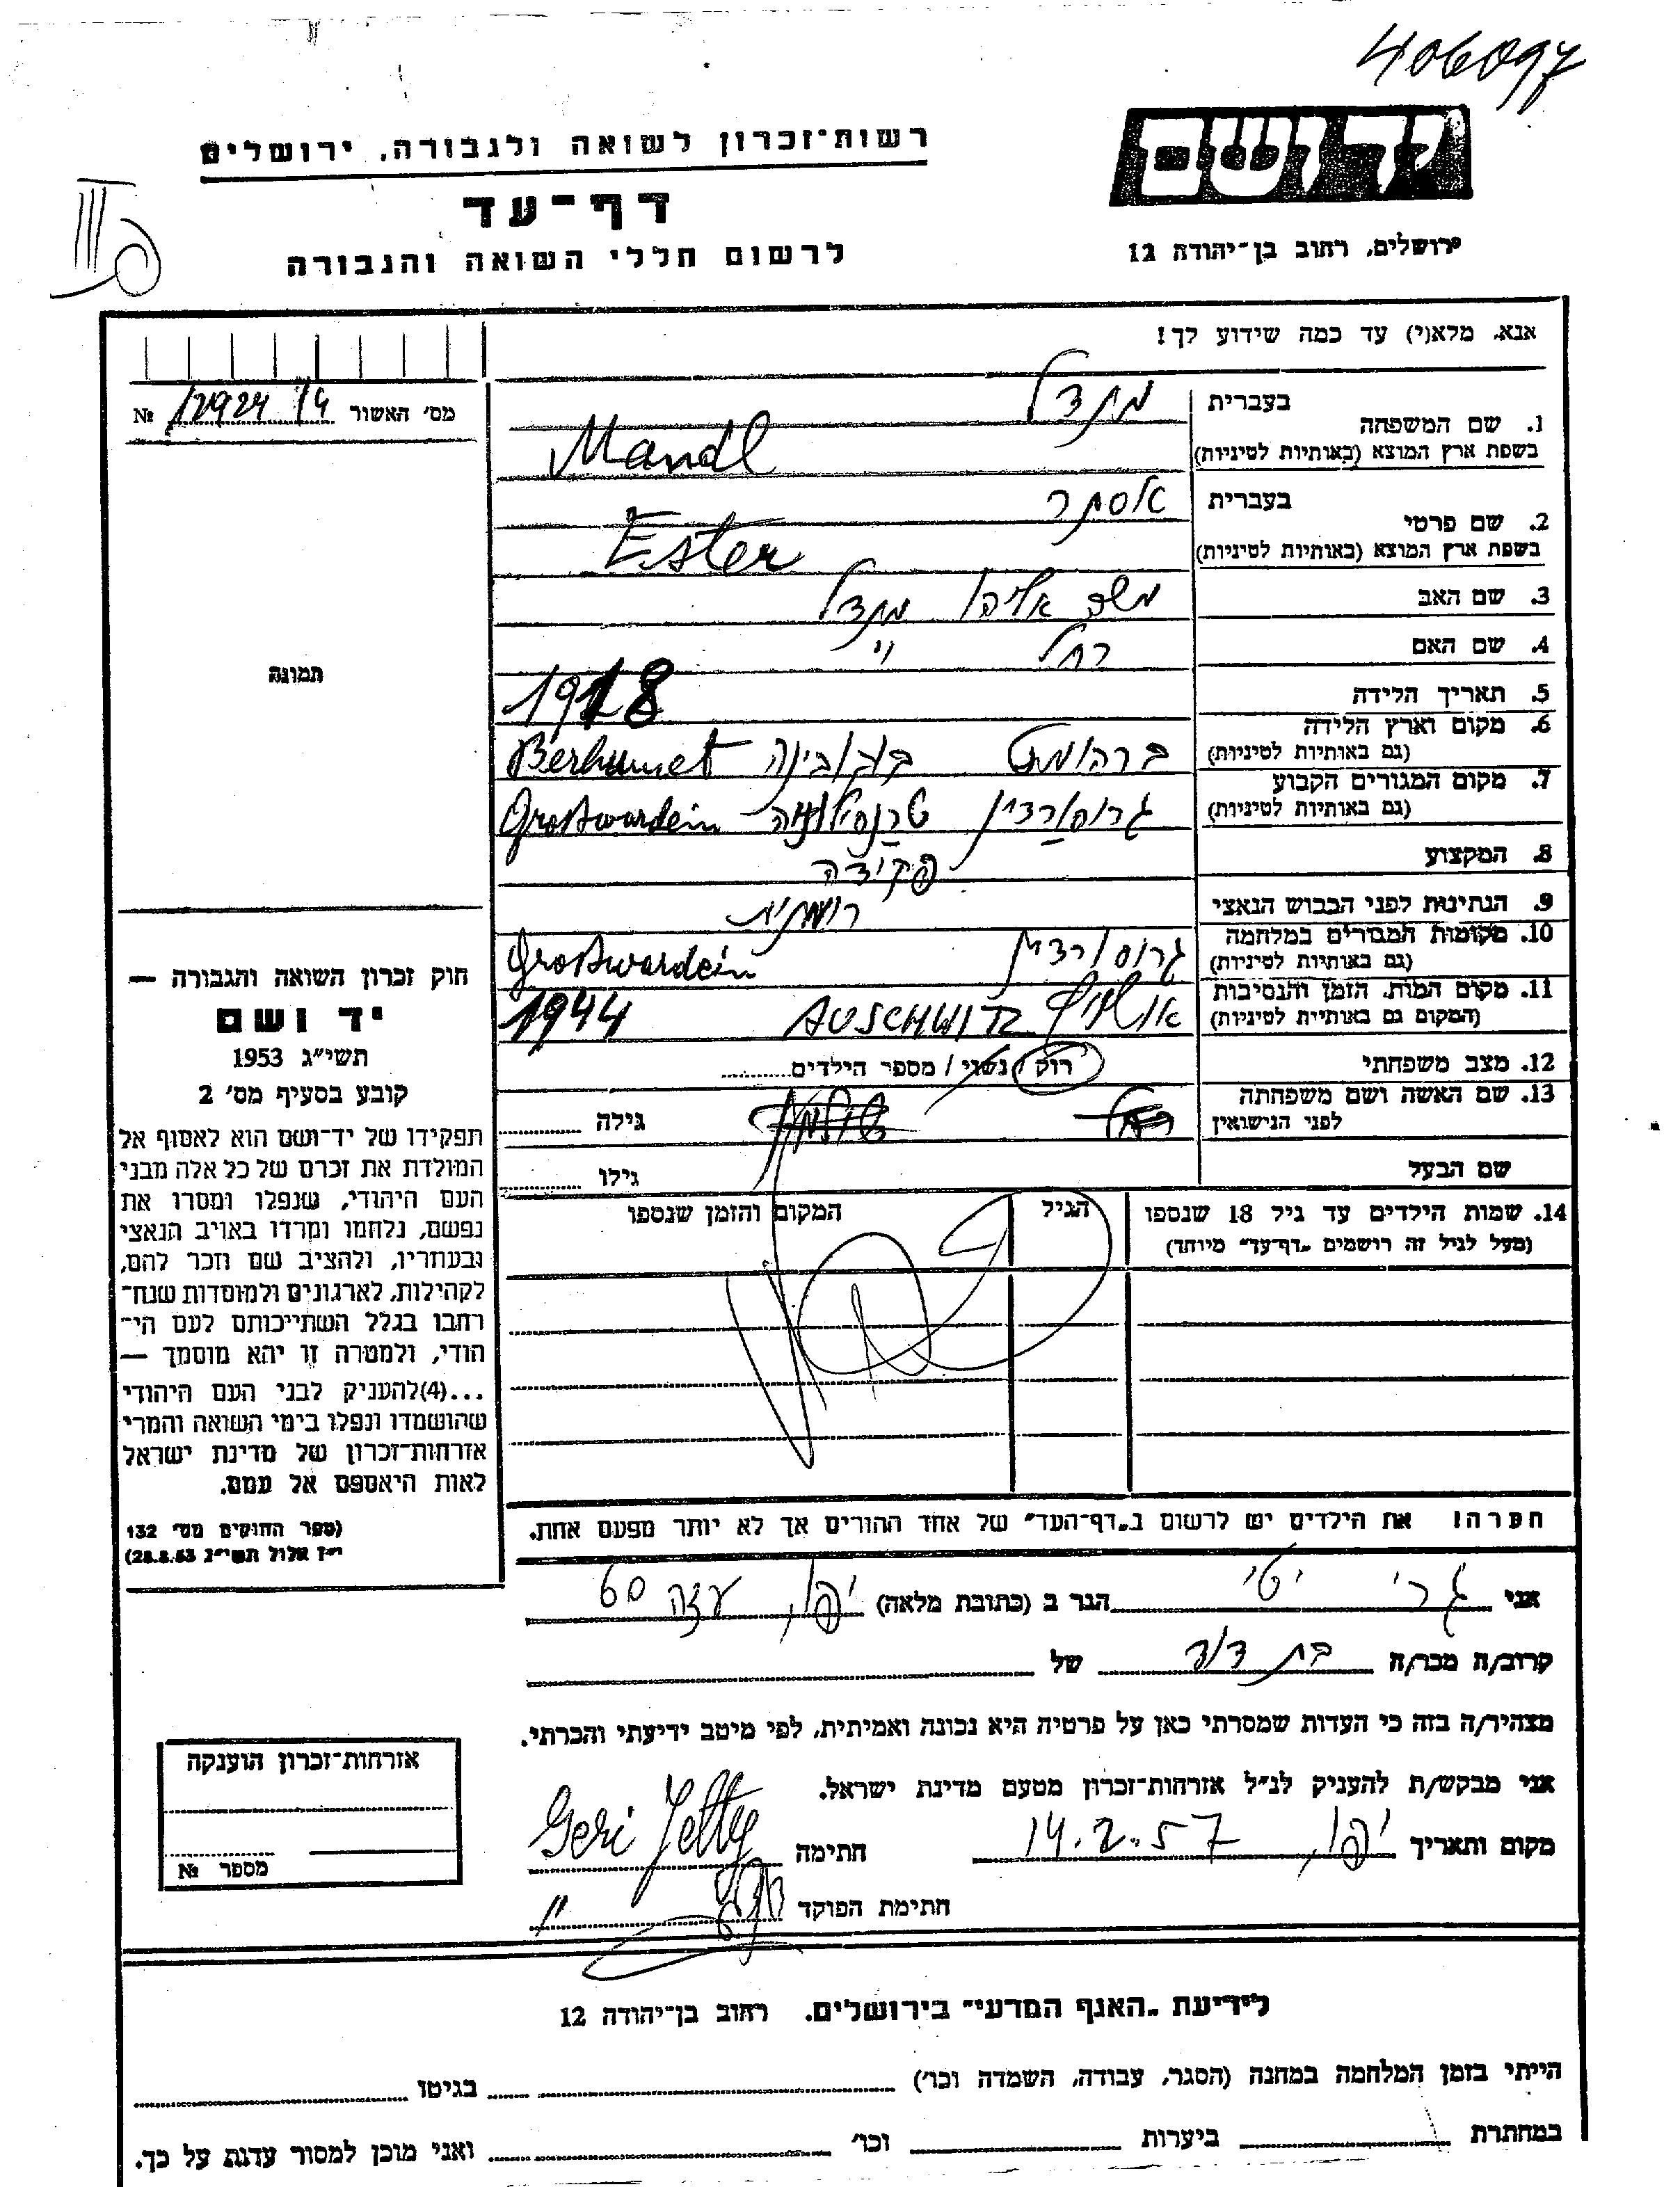 406097
יד ושם
רשות־זכרון לשואה ולגבורה, ירושלים
דף־עד
לרשום חללי השואה והגבורה
ירושלים, רחוב בן־יהודה 12
אנא, מלא(י) עד כמה שידוע לך!
מס׳ האשור 12924/4 №
1. שם המשפחה בעברית מנדל
בשפת ארץ המוצא (באותיות לטיניות) Mandl
2. שם פרטי בעברית אסתר
בשפת ארץ המוצא (באותיות לטיניות) Ester
3. שם האב משה אליהו מנדל
4. שם האם רחל "
5. תאריך הלידה 1918
6. מקום וארץ הלידה (גם באותיות לטיניות) ברהומט בוקובינה Berhumet
7. מקום המגורים הקבוע (גם באותיות לטיניות) גרוסורדיין טרנסילוניה Großwardein
8. המקצוע פקידה
9. הנתינות לפני הכבוש הנאצי רומנית
10. מקומות המגורים במלחמה (גם באותיות לטיניות) גרוסורדיין Großwardein
11. מקום המות, הזמן והנסיבות (המקום גם באותיות לטיניות) אושויץ AUSCHWITZ 1944
12. מצב משפחתי רוק / נשוי / מספר הילדים
13. שם האשה ושם משפחתה לפני הנישואין גילה
שם הבעל גילו
14. שמות הילדים עד גיל 18 שנספו הגיל המקום והזמן שנספו
(מעל לגיל זה רושמים „דף־עד" מיוחד)
הערה! את הילדים יש לרשום ב„דף־העד" של אחד ההורים אך לא יותר מפעם אחת.
תמונה
חוק זכרון השואה והגבורה —
יד ושם
תשי״ג 1953
קובע בסעיף מס׳ 2
תפקידו של יד־ושם הוא לאסוף אל
המולדת את זכרם של כל אלה מבני
העם היהודי, שנפלו ומסרו את
נפשם, נלחמו ומרדו באויב הנאצי
ובעוזריו, ולהציב שם וזכר להם,
לקהילות, לארגונים ולמוסדות שנח־
רבו בגלל השתייכותם לעם הי־
הודי, ולמטרה זו יהא מוסמך —
...(4)להעניק לבני העם היהודי
שהושמדו ונפלו בימי השואה והמרי
אזרחות־זכרון של מדינת ישראל
לאות היאספם אל עמם.
(ספר החוקים מס׳ 132
י״ז אלול תשי״ג 28.8.53)
אני גרי יטי הגר ב (כתובת מלאה) יפו, עזה 60
קרוב/ה מכר/ה בת דוד של
מצהיר/ה בזה כי העדות שמסרתי כאן על פרטיה היא נכונה ואמיתית, לפי מיטב ידיעתי והכרתי.
אני מבקש/ת להעניק לנ״ל אזרחות־זכרון מטעם מדינת ישראל.
מקום ותאריך יפו, 14.2.57 חתימה Geri Jetty
חתימת הפוקד
אזרחות־זכרון הוענקה
מספר №
לידיעת „האגף המדעי" בירושלים. רחוב בן־יהודה 12
הייתי בזמן המלחמה במחנה (הסגר, עבודה, השמדה וכו׳) בגיטו
במחתרת ביערות וכו׳ ואני מוכן למסור עדות על כך.